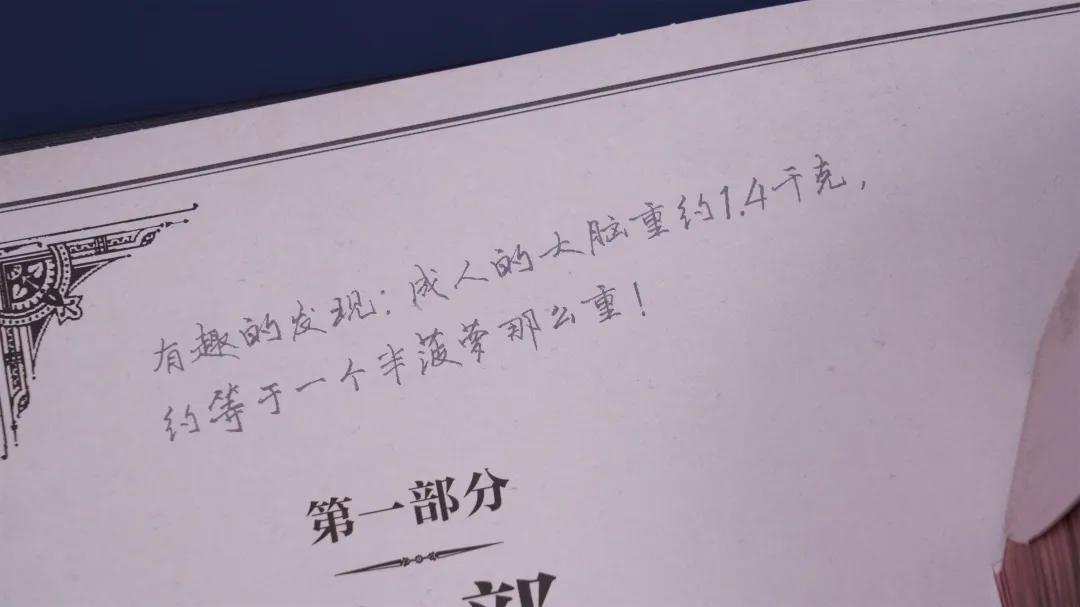 有趣的发现：成人的大脑重约1.4千克，
约等于一个半菠萝那么重！
第一部分
部